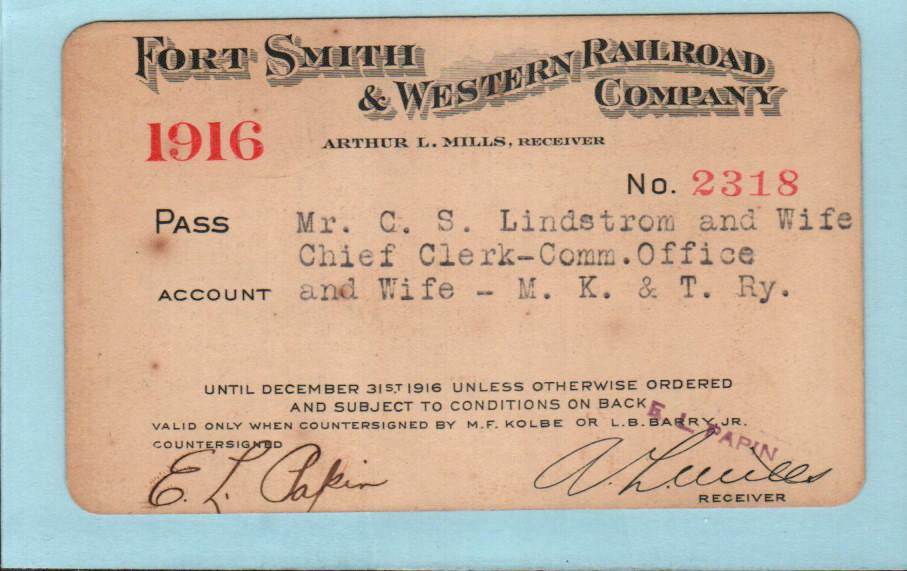 FORT SMITH
& WESTERN RAILROAD
COMPANY
1916
ARTHUR L. MILLS, RECEIVER
No. 2318
PASS Mr. C. S. Lindstrom and Wife
Chief Clerk-Comm.Office
ACCOUNT and Wife - M. K. & T. Ry.
UNTIL DECEMBER 31ST 1916 UNLESS OTHERWISE ORDERED
AND SUBJECT TO CONDITIONS ON BACK
VALID ONLY WHEN COUNTERSIGNED BY M.F. KOLBE OR L.B. BARRY, JR.
E. L. PAPIN
COUNTERSIGNED
E. L. Papin
A. L. Mills
RECEIVER